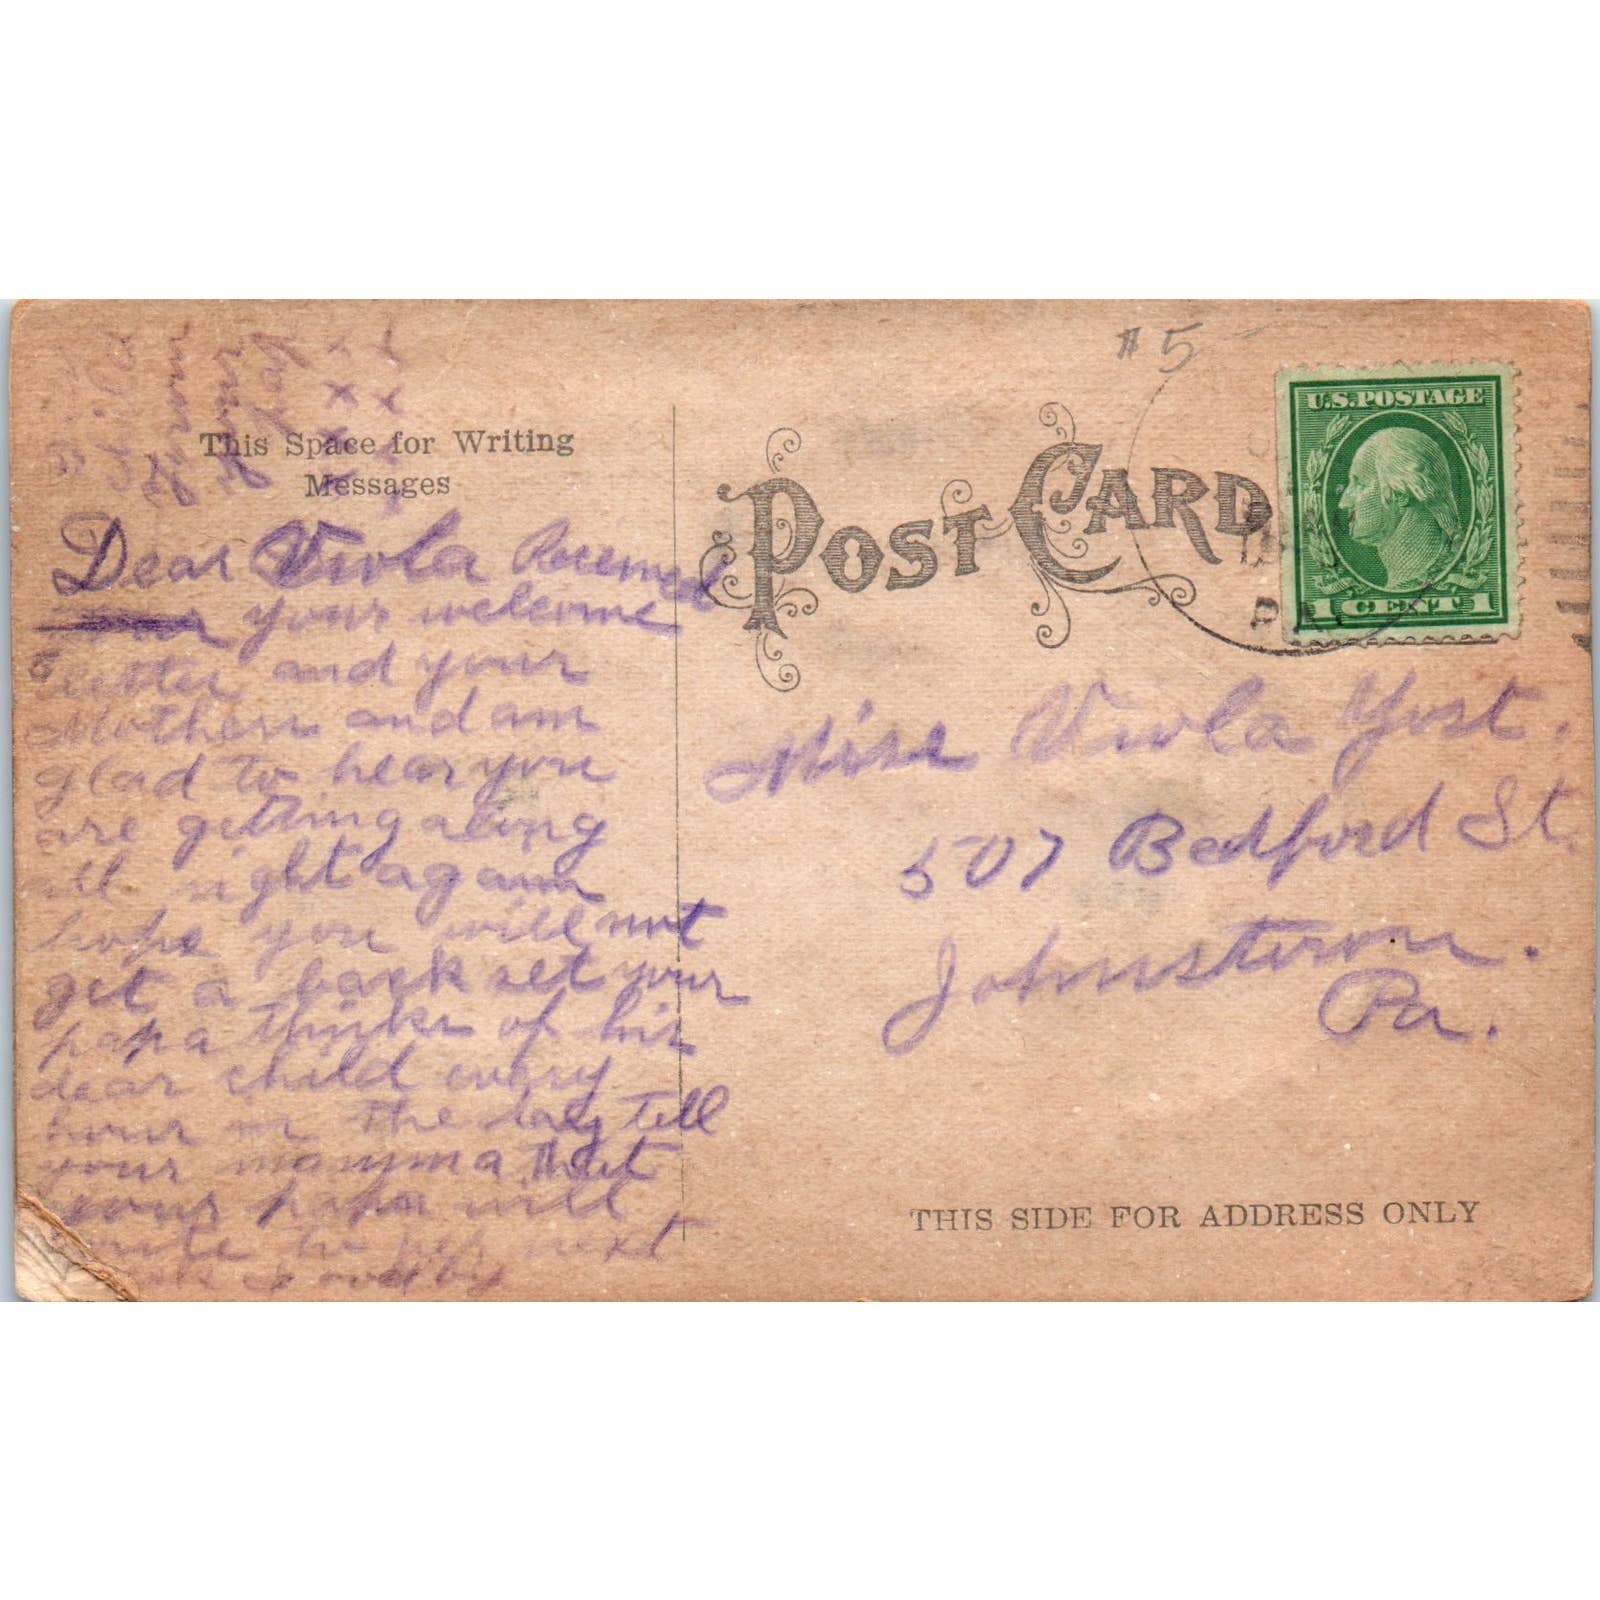 #5
U.S.POSTAGE
1 CENT 1
This Space for Writing
Messages
POST CARD
P.M.
Dear Viola Received
your welcome
letter and your
Mothers and am
glad to hear you
are getting along
all right again
hope you will not
get a back set your
papa thinks of his
dear child every
hour in the day tell
your mamma that
your papa will
write to her next
good by
x x
x x
Miss Viola Yost.
507 Bedford St.
Johnstown.
Pa.
THIS SIDE FOR ADDRESS ONLY